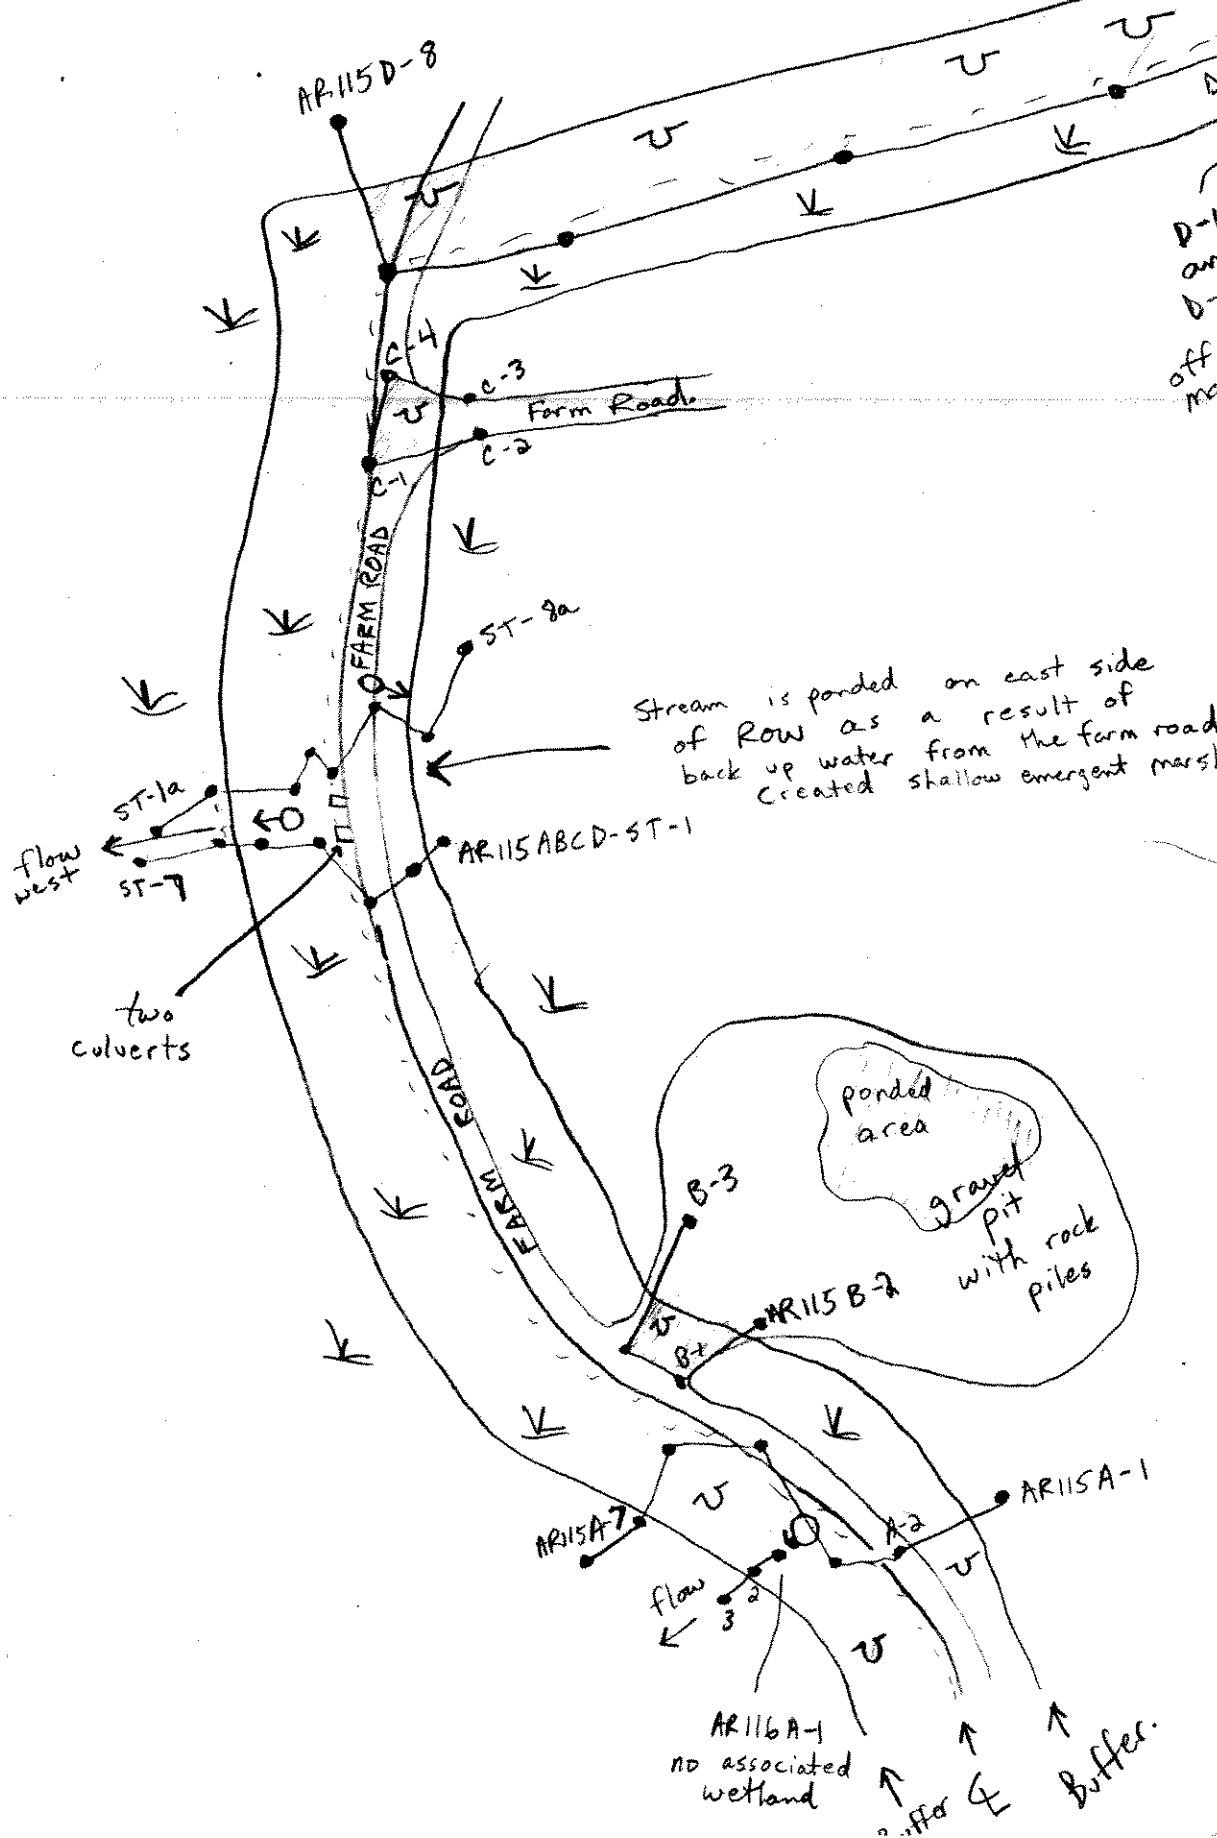 AR115D-8
D-1
D-
off
C-4
C-3
Farm Road.
C-2
C-1
FARM ROAD
ST-8a
Stream is ponded on east side
of ROW as a result of
back up water from the farm road
Created shallow emergent marsh
ST-1a
flow
west
ST-7
AR115ABCD-ST-1
two
culverts
ponded
area
gravel
pit
with rock
piles
FARM ROAD
B-3
AR115B-2
B-1
AR115A-1
A-2
AR115A-7
flow
2
3
AR116A-1
no associated
wetland
Buffer
℄
Buffer.